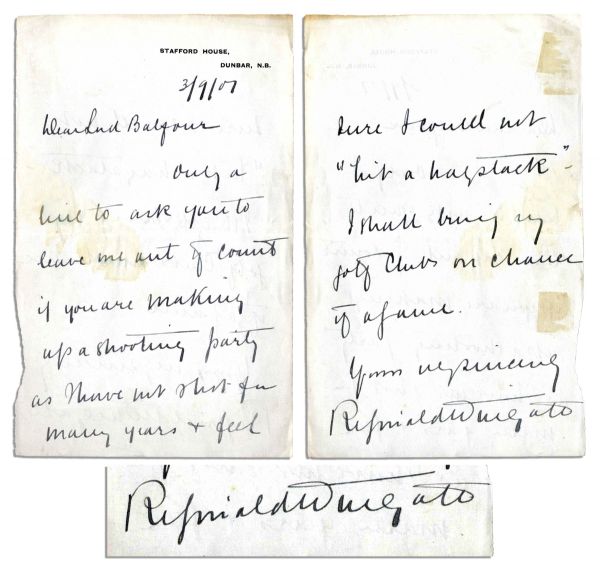 STAFFORD HOUSE,
DUNBAR, N.B.
3/9/07
Dear Lord Balfour
Only a
line to ask you to
leave me out of count
if you are making
up a shooting party
as I have not shot for
many years & feel
sure I could not
"hit a haystack" -
I shall bring my
golf clubs on chance
of a game.
Yours very sincerely
Reginald Wingate
Reginald Wingate